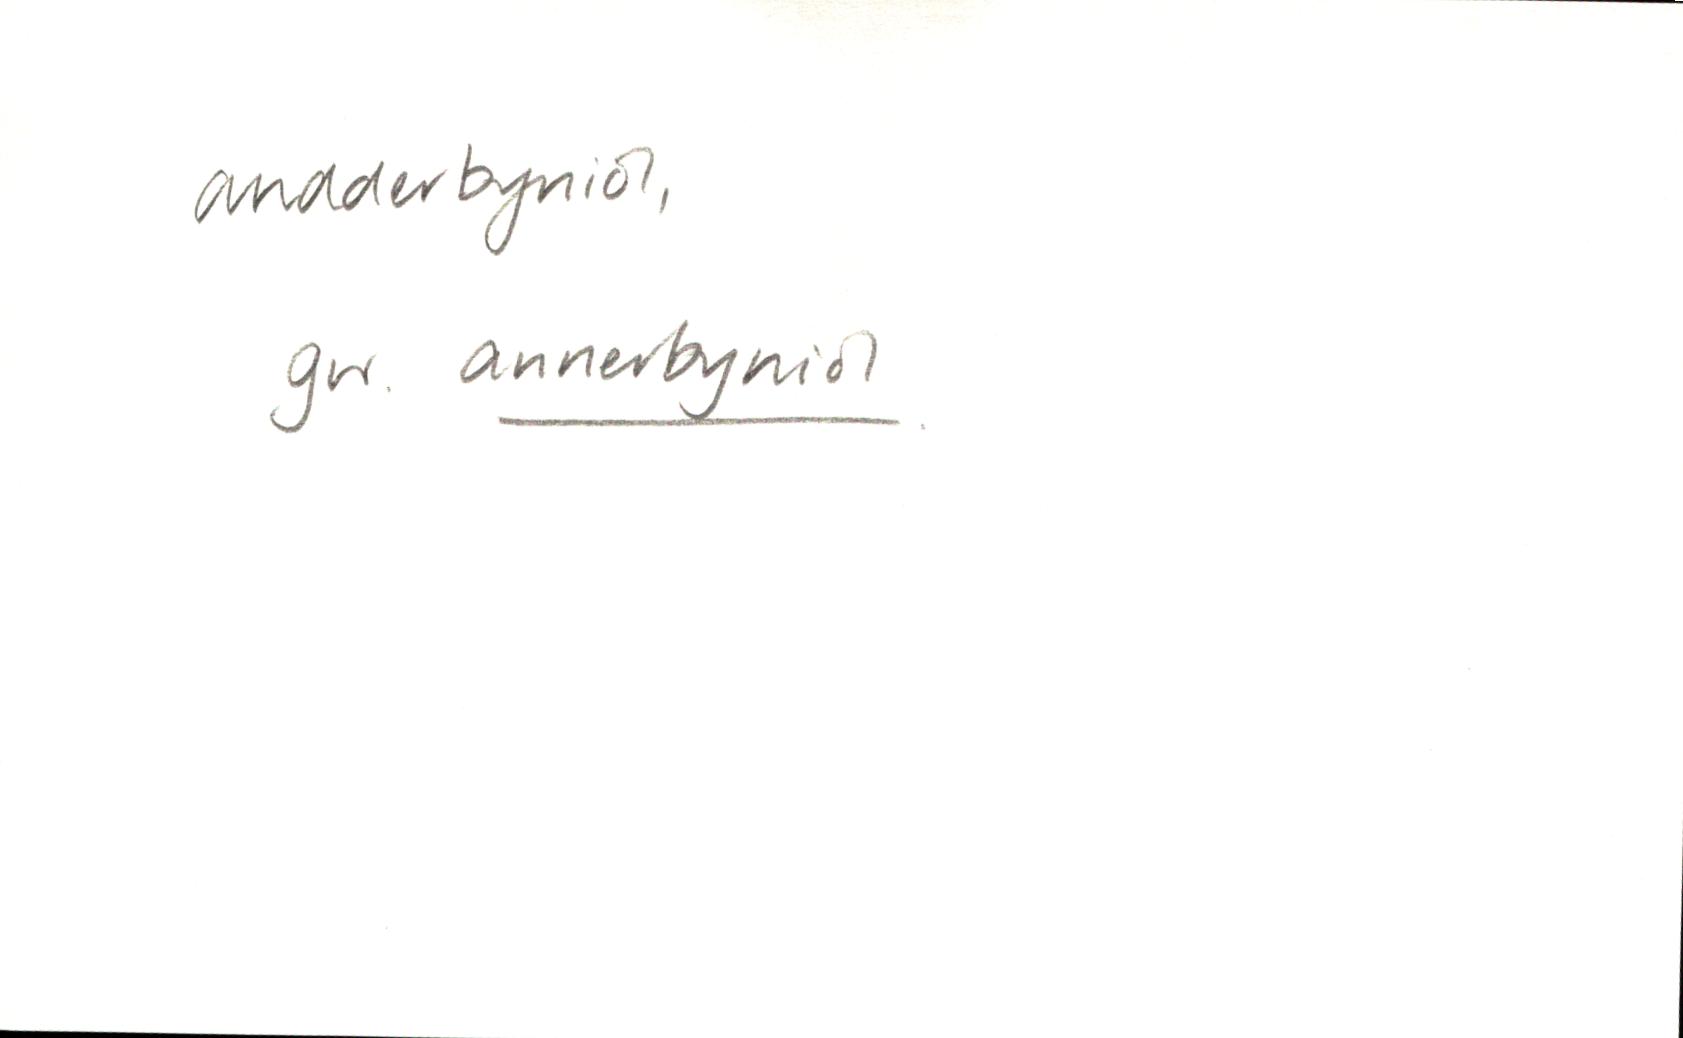 andderbyniol,
gw. annerbyniol.